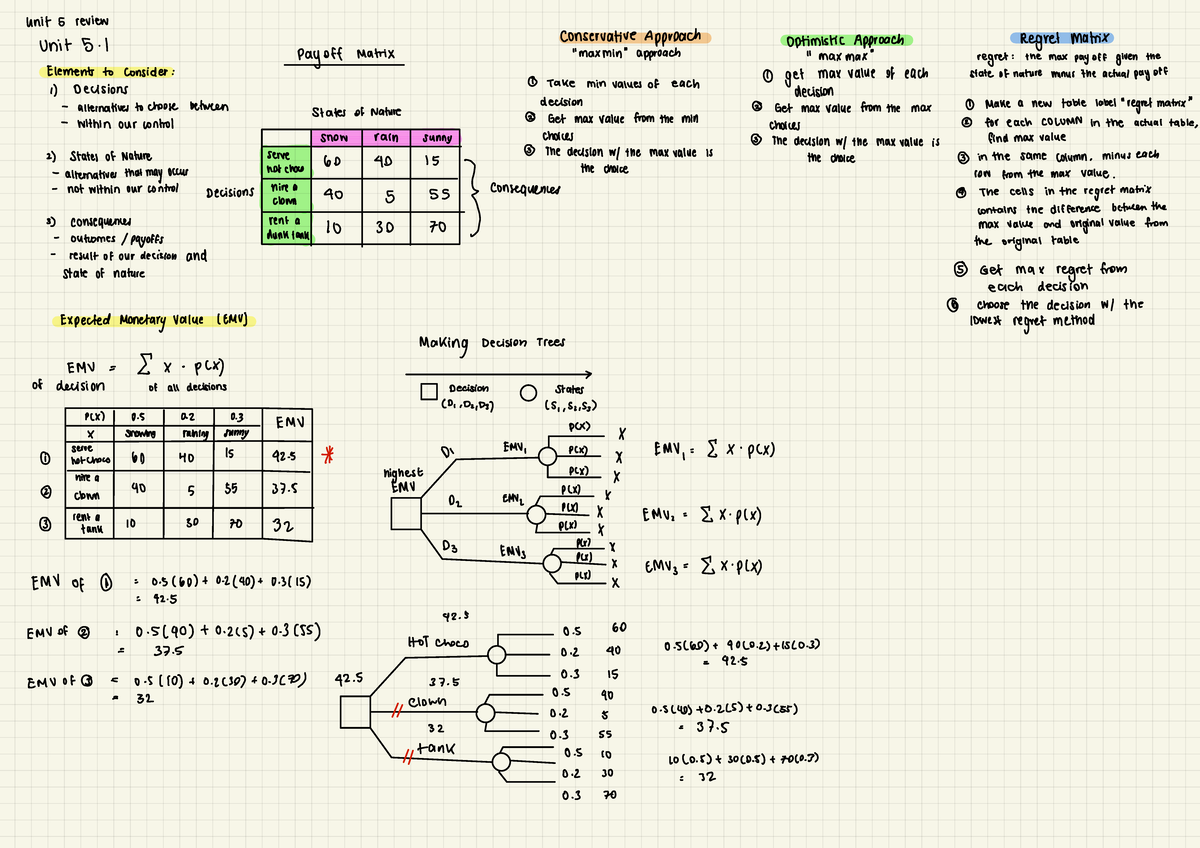 unit 5 review
Unit 5.1
Elements to Consider:
1) Decisions
- alternatives to choose between
- within our control
2) States of Nature
- alternatives that may occur
- not within our control
3) Consequences
- outcomes / payoffs
- result of our decision and
State of nature
Payoff Matrix
States of Nature
snow rain sunny
serve hot choco 60 40 15
Decisions
hire a clown 40 5 55
rent a dunk tank 10 30 70
Consequences
Conservative Approach
"maxmin" approach
① Take min values of each
decision
② Get max value from the min
choices
③ The decision w/ the max value is
the choice
Optimistic Approach
"maxmax"
① get max value of each
decision
② Get max value from the max
choices
③ The decision w/ the max value is
the choice
Regret Matrix
regret: the max pay off given the
state of nature minus the actual pay off
① Make a new table label "regret matrix"
② for each COLUMN in the actual table,
find max value
③ in the same column, minus each
row from the max value.
④ The cells in the regret matrix
contains the difference between the
max value and original value from
the original table
⑤ Get max regret from
each decision
⑥ choose the decision w/ the
lowest regret method
Expected Monetary Value (EMV)
EMV = ∑ x · p(x)
of decision of all decisions
P(X) 0.5 0.2 0.3 EMV
X snowing raining sunny
① serve hot choco 60 40 15 42.5 *
② hire a clown 40 5 55 37.5
③ rent a tank 10 30 70 32
EMV of ① = 0.5(60) + 0.2(40) + 0.3(15)
= 42.5
EMV of ② : 0.5(40) + 0.2(5) + 0.3(55)
= 37.5
EMV OF ③ = 0.5(10) + 0.2(30) + 0.3(70)
= 32
Making Decision Trees
Decision
(D₁, D₂, D₃)
States
(S₁, S₂, S₃)
highest
EMV
D₁ EMV₁
P(X) X
P(X) X
P(X) X
EMV₁ = ∑ x · p(x)
D₂ EMV₂
P(X) X
P(X) X
P(X) X
EMV₂ = ∑ x · p(x)
D₃ EMV₃
P(X) X
P(X) X
P(X) X
EMV₃ = ∑ x · p(x)
42.5
42.5
Hot choco
0.5 60
0.2 40
0.3 15
0.5(60) + 40(0.2) + 15(0.3)
= 42.5
37.5
clown
0.5 40
0.2 5
0.3 55
0.5(40) + 0.2(5) + 0.3(55)
= 37.5
32
tank
0.5 10
0.2 30
0.3 70
10(0.5) + 30(0.5) + 70(0.3)
= 32